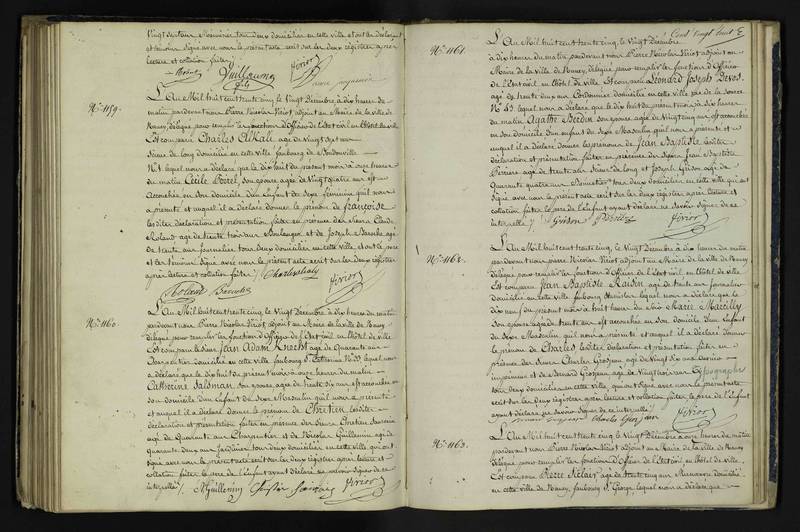 Vingt sept ans Menuisier tous deux domiciliés en cette ville et ont les déclarant
et témoins signé avec nous le présent acte écrit sur les deux registres après
lecture et collation faites
Vuillaume
Nº 1159.
L'An Mil huit cent trente cinq, le Vingt Décembre à dix heures du
matin, pardevant nous Pierre Nicolas Viriot adjoint au Maire de la ville de
Nancy, délégué pour remplir les fonctions d'Officier de l'Etat civil en l'hôtel de ville
Est comparu Charles Alkali agé de vingt sept ans
domicilié en cette ville faubourg de Boudonville
lequel nous a déclaré que le dix huit du présent mois à onze heures
du matin Cécile Borel, son épouse agée de Vingt quatre ans est
Accouchée en son domicile d'un Enfant du Sexe féminin quil nous
a présenté et auquel il a déclaré donner le prénom de Françoise
lesdites déclaration et présentation faites en présence des Sieurs Claude
Roland agé de trente trois ans Boulanger et de Joseph
de trente ans Journalier tous deux domiciliés en cette ville, et ont le père
et les témoins Signé avec nous le présent acte écrit sur les deux registres
après lecture et collation faites
Nº 1160
L'An Mil huit cent trente cinq, le Vingt Décembre à dix heures du matin
pardevant nous Pierre Nicolas Viriot adjoint au Maire de la ville de Nancy
délégué pour remplir les fonctions d'Officier de l'Etat civil en l'hôtel de ville
Est comparu le Sieur Jean Adam Knecht agé de Quarante ans
domicilié en cette ville faubourg Ste Catherine Nº 33, lequel nous
a déclaré que le dix huit du présent mois à onze heures du matin
Catherine Salomon, son épouse agée de trente six ans est accouchée en
son domicile d'un Enfant du Sexe Masculin quil nous a présenté
et auquel il a déclaré donner le prénom de Chrétien lesdites
déclaration et présentation faites en présence des Sieurs Chrétien
agé de Quarante ans Charpentier et de Nicolas Guillemin agé de
Quarante deux ans Jardinier tous deux domiciliés en cette ville qui ont
Signé avec nous le présent acte écrit sur les deux registres après lecture et
collation faites le père de l'Enfant ayant déclaré ne savoir signer de ce
interpellé
Guillemin Viriot
Cent vingt huit
Nº 1161.
L'An Mil huit cent trente cinq, le Vingt Décembre
à dix heures du matin, pardevant nous Pierre Nicolas Viriot adjoint au
Maire de la ville de Nancy, délégué pour remplir les fonctions d'Officier
de l'Etat civil en l'hôtel de ville Est comparu Léonard Joseph Devos,
agé de trente deux ans Cordonnier domicilié en cette ville rue de la
Nº 43 lequel nous a déclaré que le dix huit du présent mois à dix heures
du matin Agathe Bredon son épouse agée de Vingt cinq ans est accouchée
en son domicile d'un enfant du Sexe Masculin quil nous a présenté et
auquel il a déclaré donner les prénoms de Jean Baptiste lesdites
déclaration et présentation faites en présence des Sieurs Jean Baptiste
agé de trente et de Joseph Grison agé de
Quarante quatre ans tous deux domiciliés en cette ville qui ont
Signé avec nous le présent acte écrit sur les deux registres après lecture et
collation faites le père de l'Enfant ayant déclaré ne savoir Signer de ce
interpellé
Grison Viriot
Nº 1162.
L'An Mil huit cent trente cinq, le Vingt Décembre à dix heures du matin
pardevant nous Pierre Nicolas Viriot adjoint au Maire de la ville de Nancy
délégué pour remplir les fonctions d'Officier de l'Etat civil en l'hôtel de ville
Est comparu Jean Baptiste Raison agé de trente ans Journalier
domicilié en cette ville faubourg Stanislas lequel nous a déclaré que le
dix neuf du présent mois à huit heures du soir Marie Marcilly
Son épouse agée de trente ans est accouchée en son domicile d'un Enfant
du Sexe Masculin quil nous a présenté et auquel il a déclaré donner
le prénom de Charles lesdites déclaration et présentation faites en
présence des Sieurs Charles Grosjean agé de Vingt six ans
imprimeur et de Bernard Grosjean agé de Vingt trois ans Typographe
tous deux domiciliés en cette ville, qui ont Signé avec nous le présent acte
écrit sur les deux registres après lecture et collation faites le père de l'Enfant
ayant déclaré ne savoir Signer de ce interpellé
Charles Grosjean Viriot
Nº 1163.
L'An Mil huit cent trente cinq, le Vingt Décembre à onze heures du matin
pardevant nous Pierre Nicolas Viriot adjoint au Maire de la ville de Nancy
délégué pour remplir les fonctions d'Officier de l'Etat civil en l'hôtel de ville.
Est comparu Pierre Keller agé de trente cinq ans domicilié
en cette ville de Nancy, faubourg St George lequel nous a déclaré que